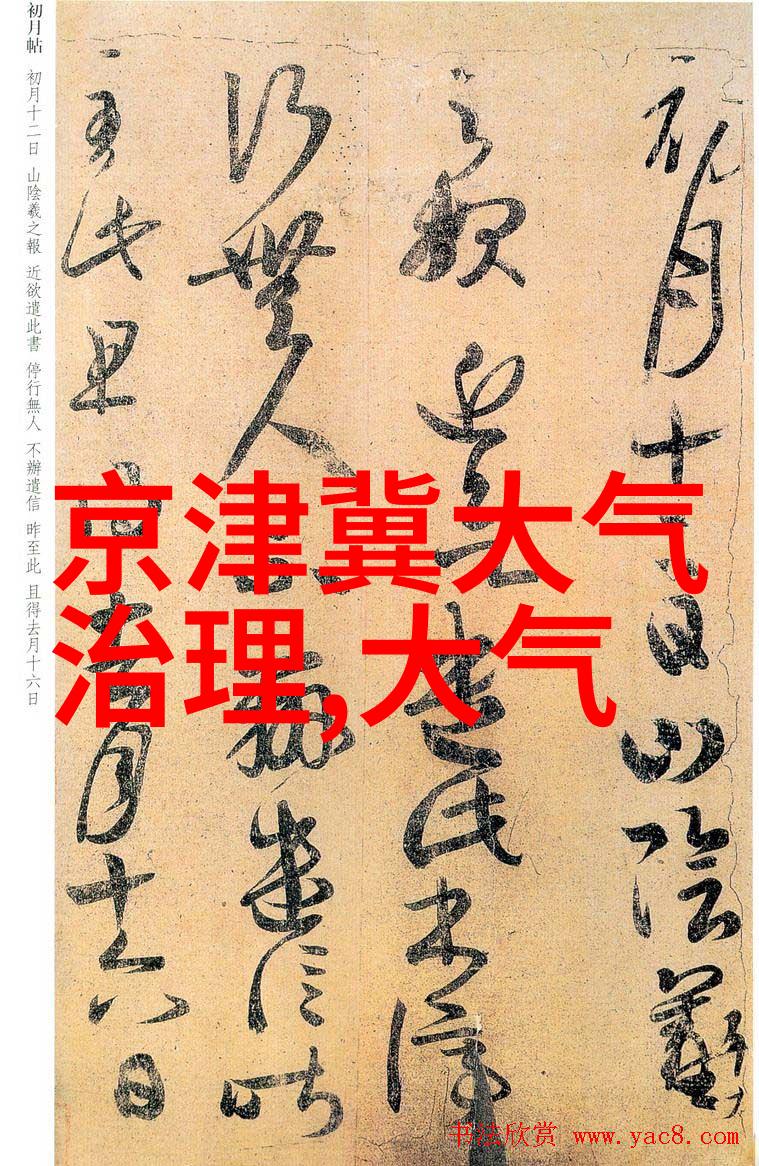 初月十二日山陰羲
之報近遣此書停
行無人不辦遣信昨
至此且得去月十六日
初月帖 初月十二日 山陰羲之報 近欲遣此書 停行無人 不辦遣信 昨至此 且得去月十六日
京津冀大气
治理,大气
书法欣赏 www.yac8.com